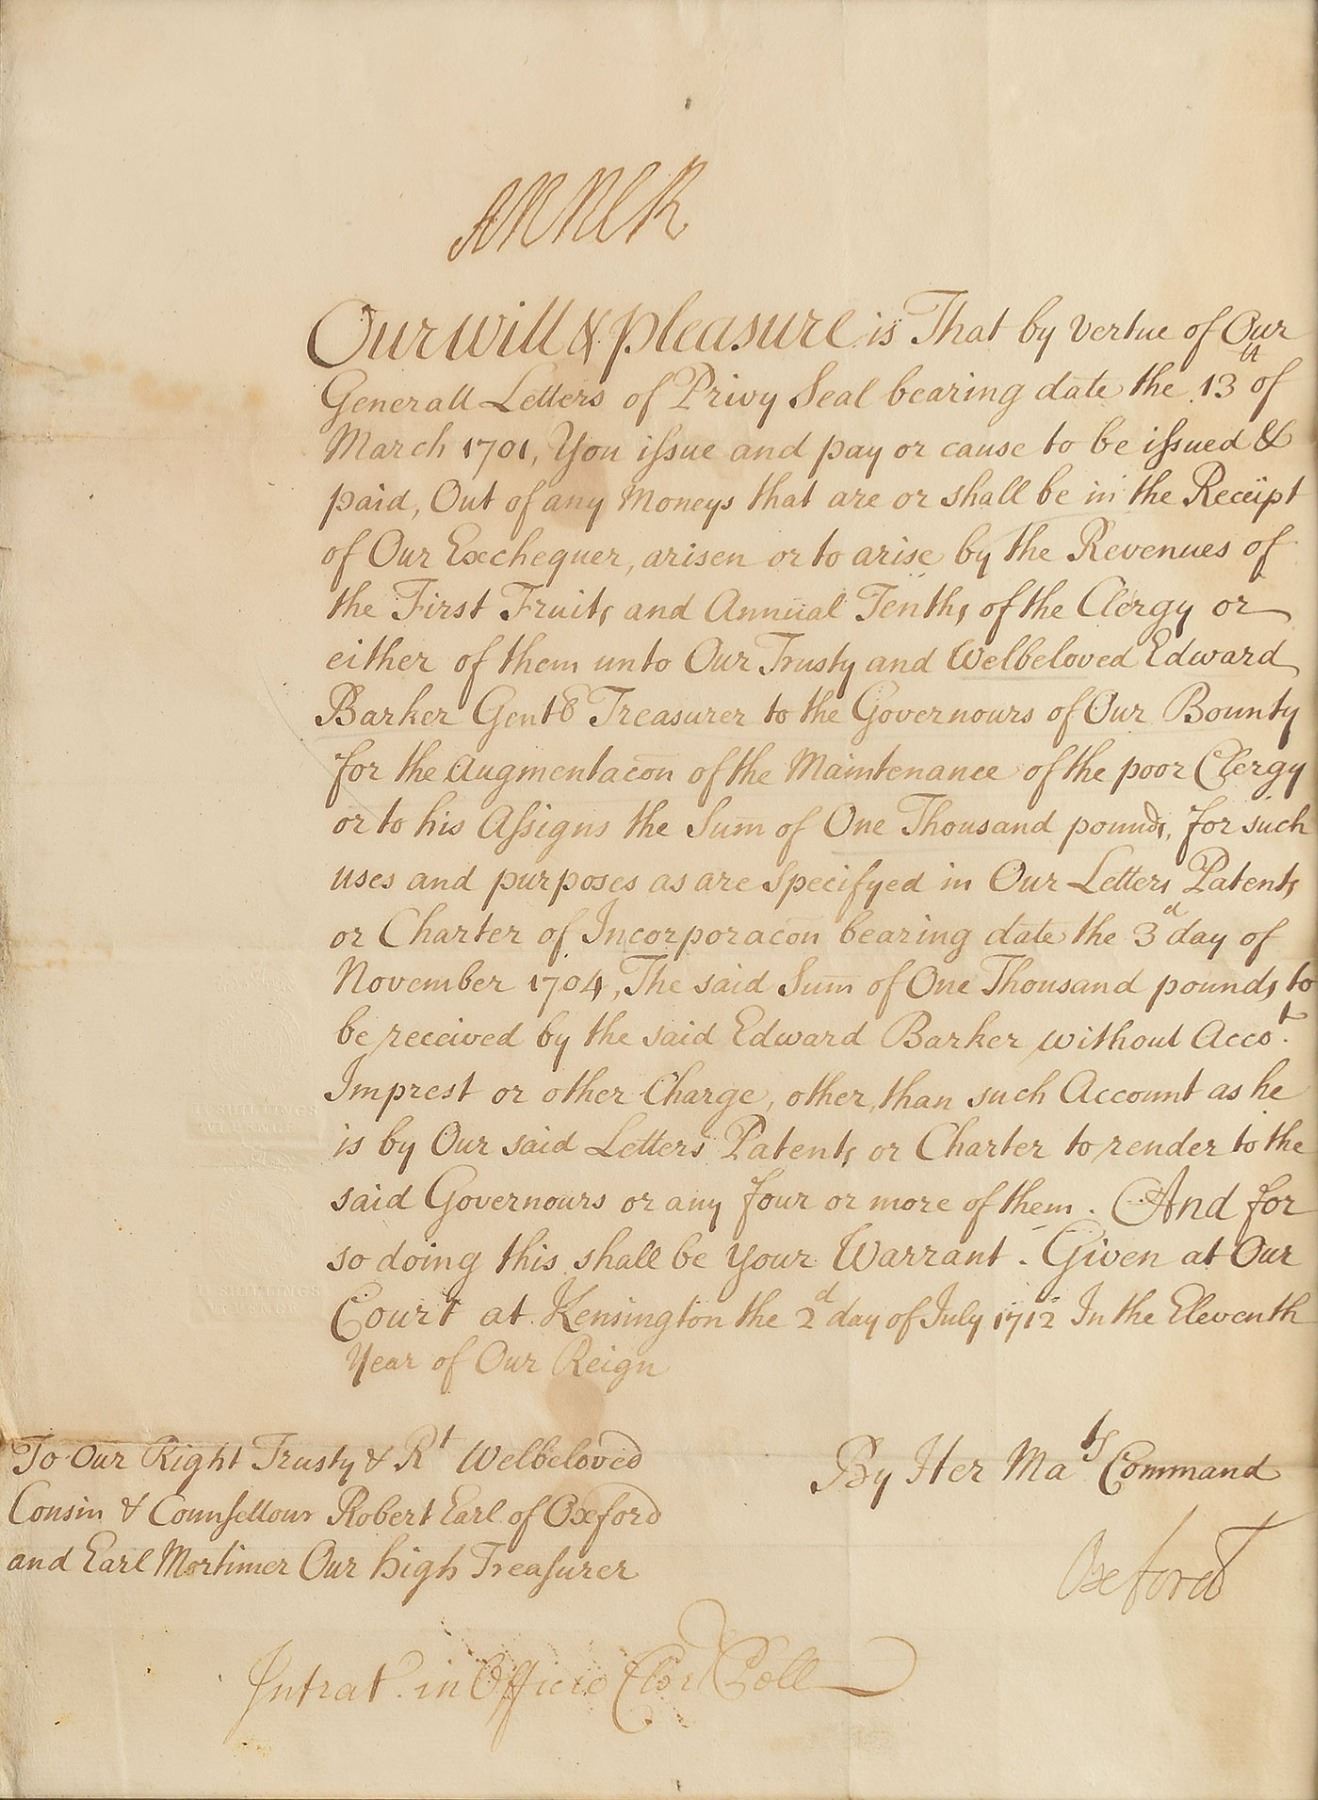 ANNE R
Our Will & pleasure is That by vertue of Our
Generall Letters of Privy Seal bearing date the 13th of
March 1701, You issue and pay or cause to be issued &
paid, Out of any Moneys that are or shall be in the Receipt
of Our Exchequer, arisen or to arise by the Revenues of
the First Fruits and Annual Tenths of the Clergy or
either of them unto Our Trusty and Welbeloved Edward
Barker Gent Treasurer to the Governours of Our Bounty
for the Augmentacōn of the Maintenance of the poor Clergy
or to his Assigns the Sum̄ of One Thousand pounds, for such
uses and purposes as are Specifyed in Our Letters Patents
or Charter of Incorporacōn bearing date the 3d day of
November 1704, The said Sum̄ of One Thousand pounds to
be received by the said Edward Barker without Accot.
Imprest or other Charge, other than such Account as he
is by Our said Letters Patents or Charter to render to the
said Governours or any four or more of them. And for
so doing this shall be Your Warrant. Given at Our
Court at Kensington the 2d day of July 1712 In the Eleventh
Year of Our Reign
To Our Right Trusty & Rt Welbeloved
Cousin & Counsellour Robert Earl of Oxford
and Earl Mortimer Our high Treasurer
By Her Mats Command
Oxford
Intrat. in Officio Pell
VI SHILLINGS